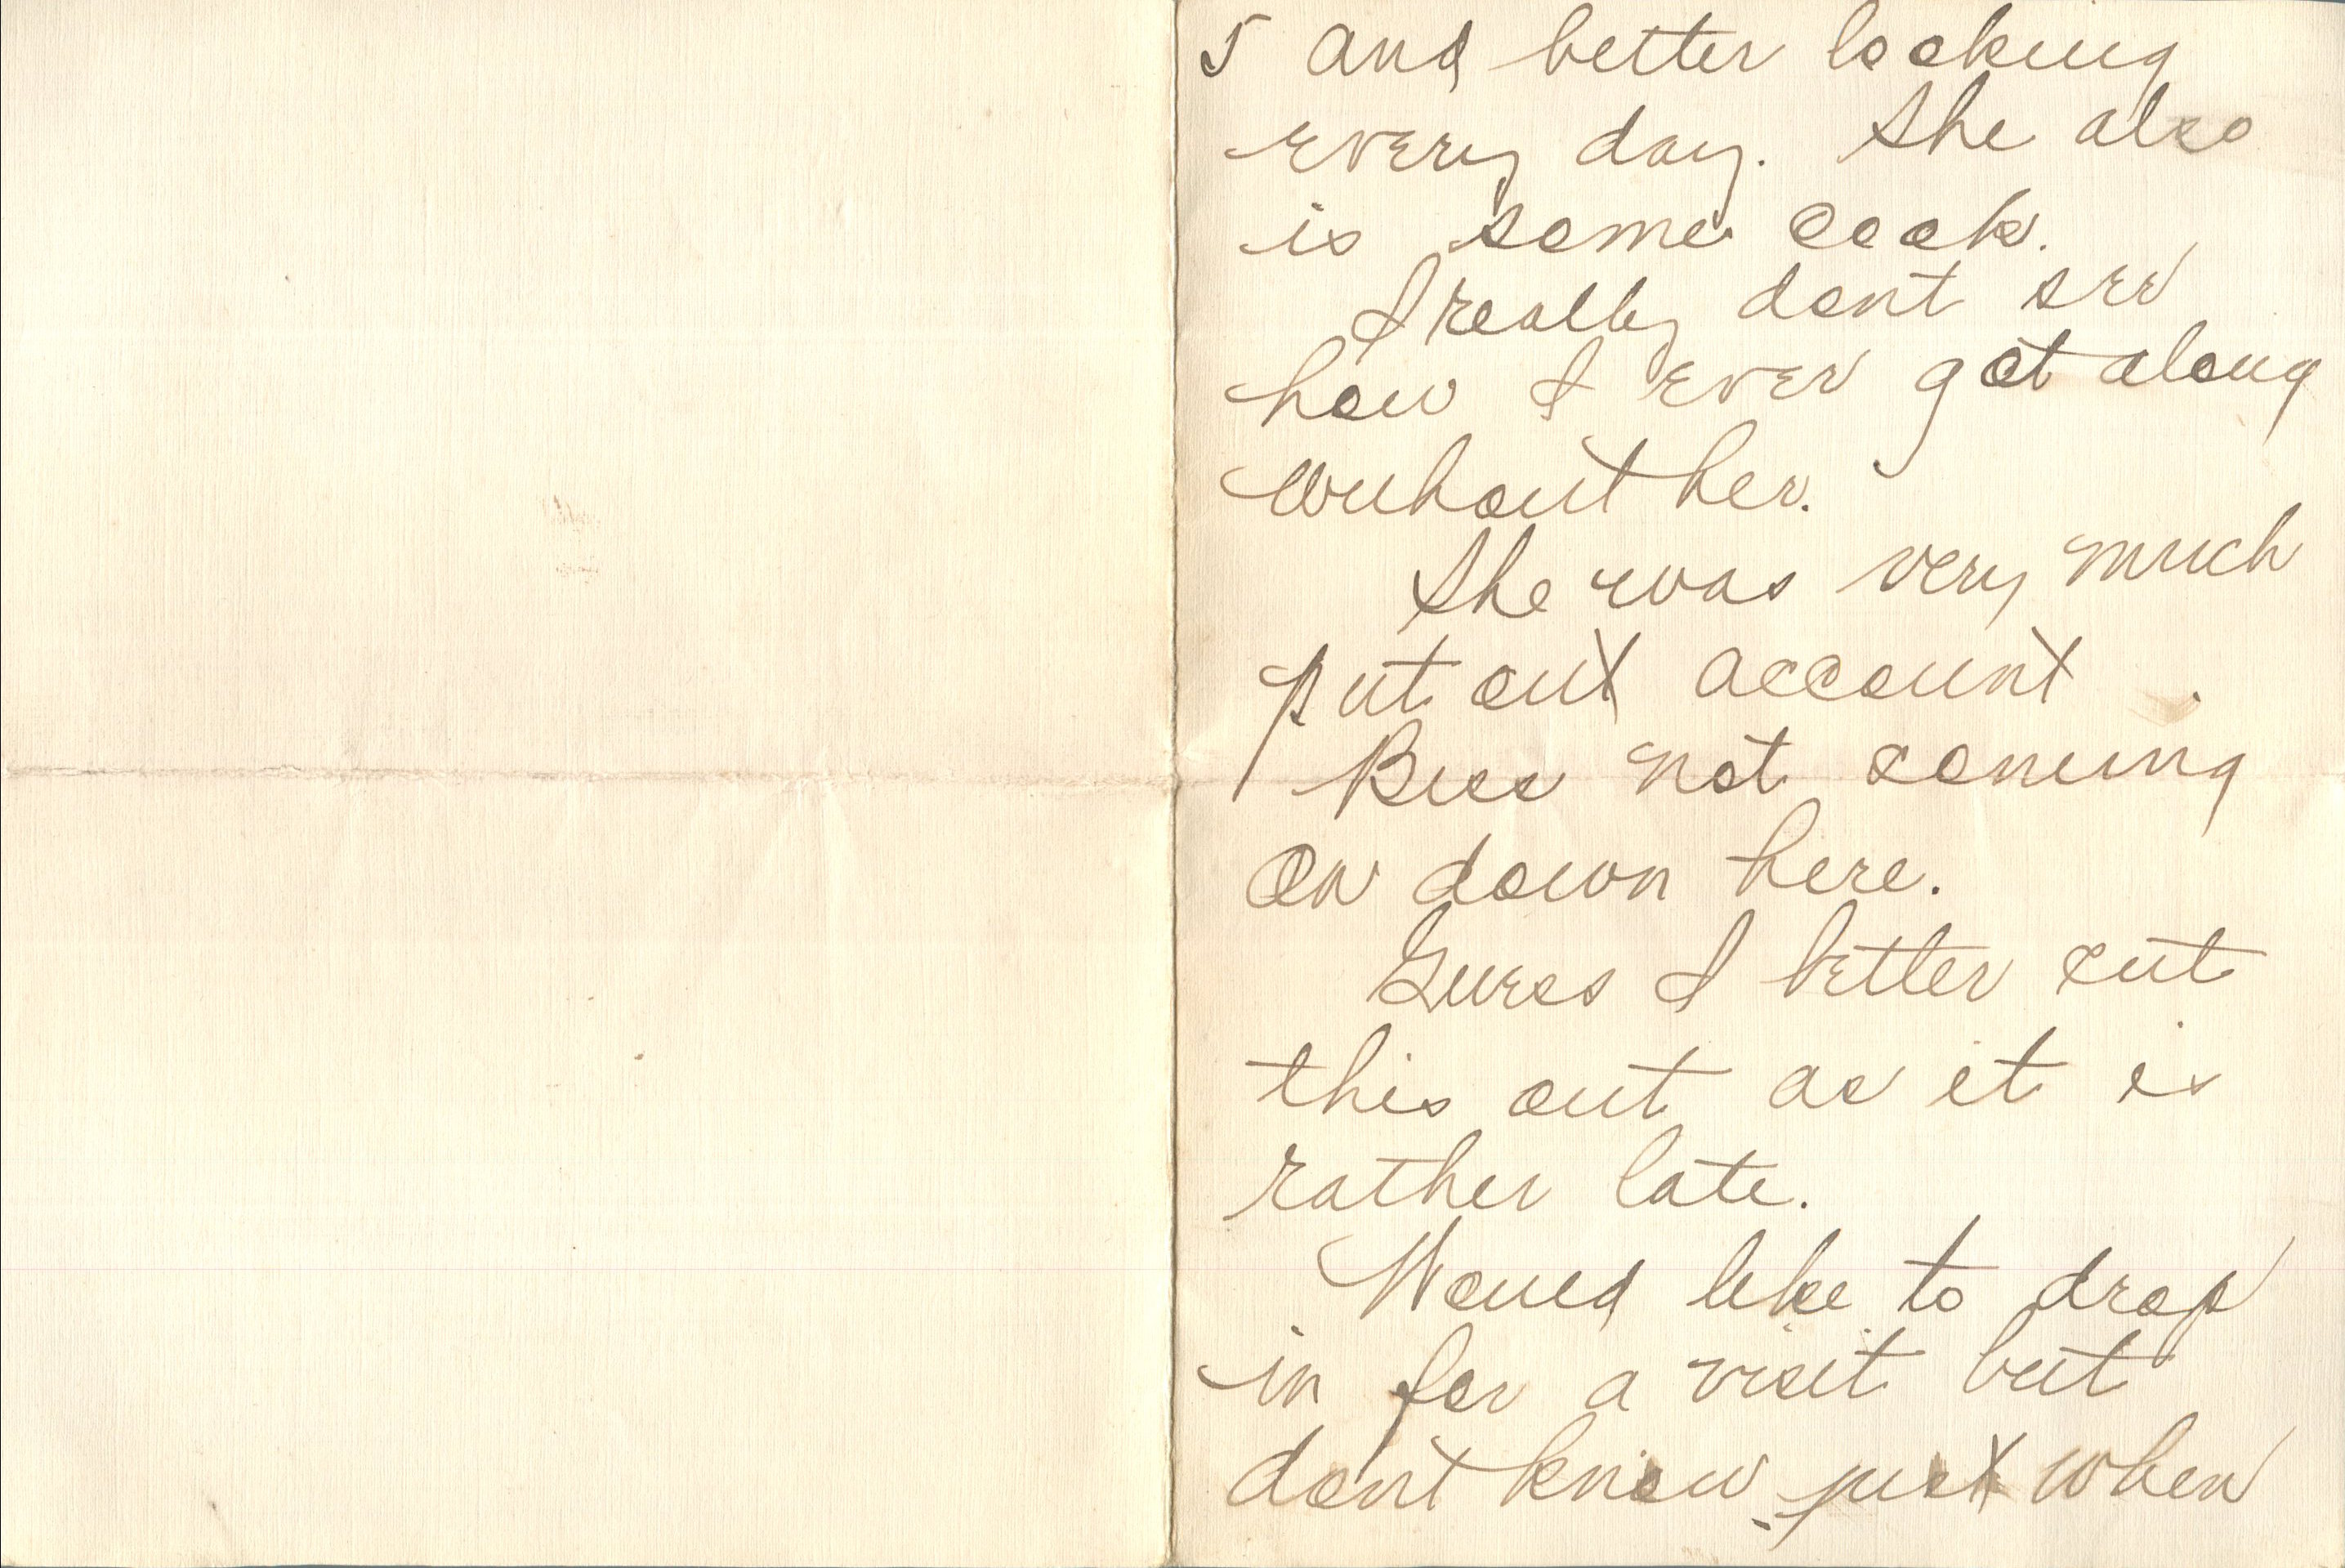 5 and better looking
every day. She also
is some cook.
I really dont see
how I ever got along
without her.
She was very much
put out account
Bess not coming
on down here.
Guess I better cut
this out as it is
rather late.
Would like to drop
in for a visit but
dont know just when